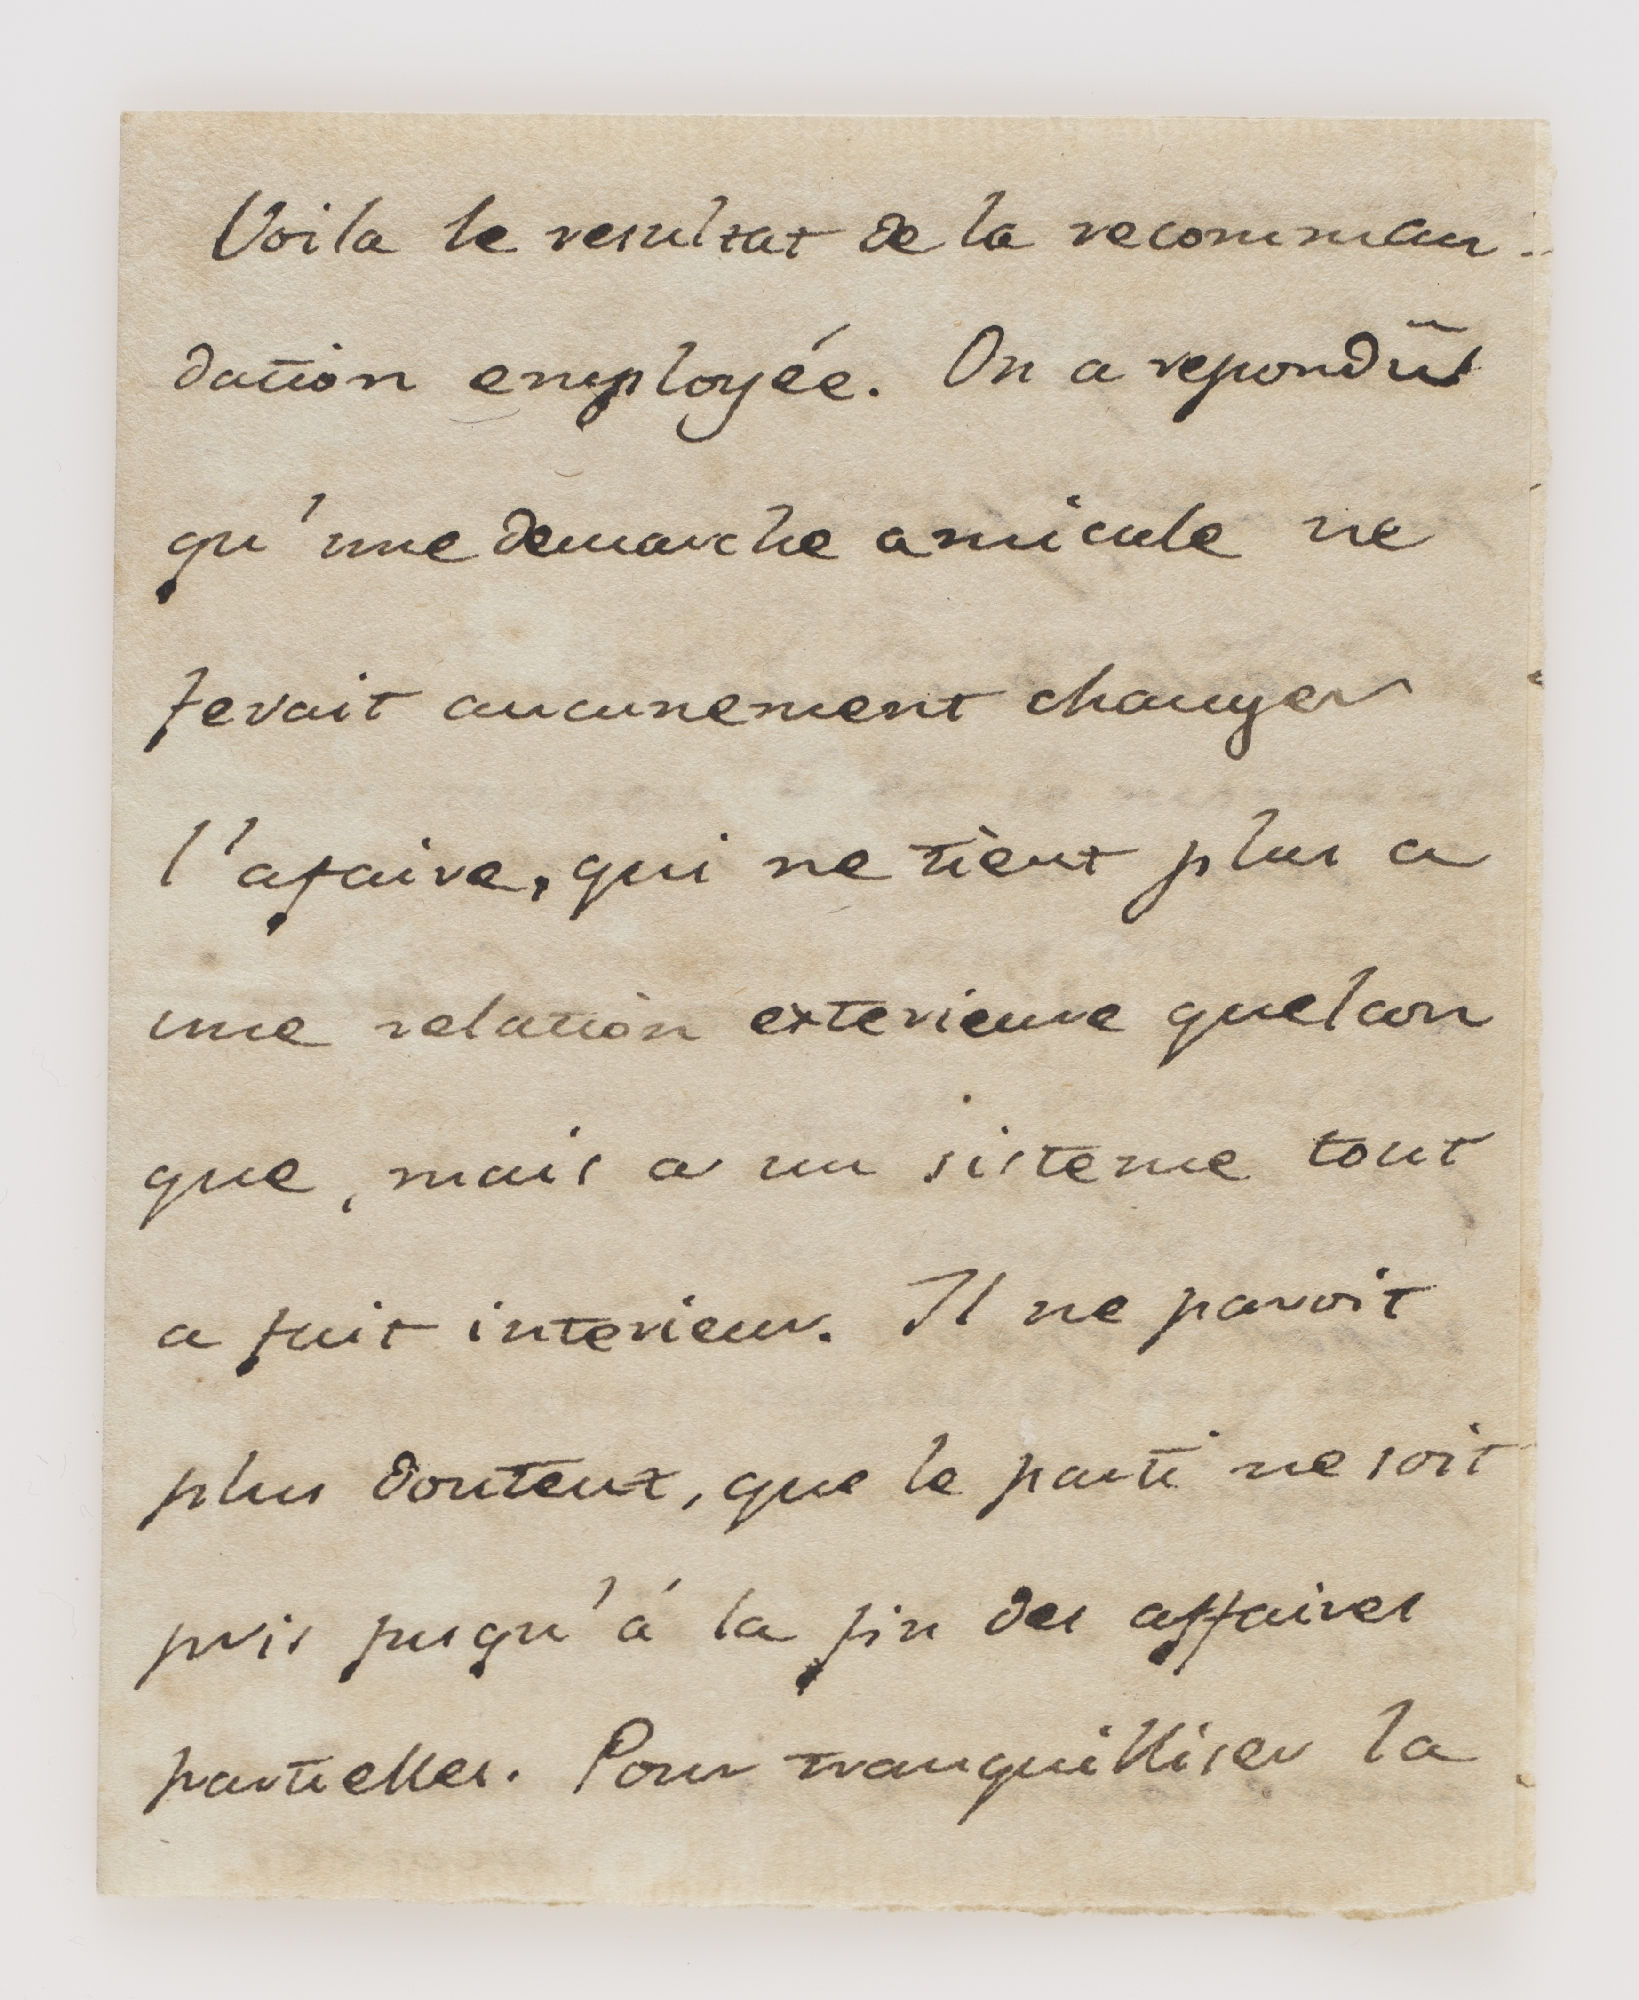 Voila le resultat de la recomman-
dation employée. On a repondu
qu'une demarche amicale ne
ferait aucunement changer
l'afaire, qui ne tient plus a
une relation exterieure quelcon
que, mais a un sisteme tout
a fait interieur. Il ne paroit
plus douteux, que le parti ne soit
pris jusqu'á la fin des affaires
partielles. Pour tranquilliser la